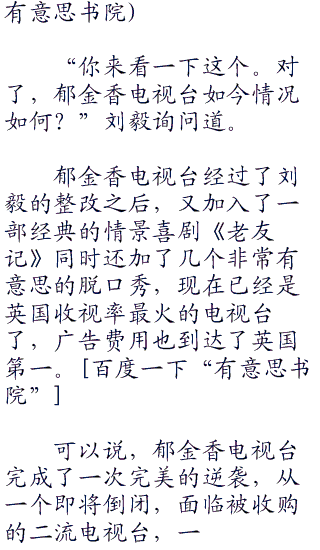 有意思书院)
“你来看一下这个。对
了，郁金香电视台如今情况
如何？” 刘毅询问道。
郁金香电视台经过了刘
毅的整改之后，又加入了一
部经典的情景喜剧《老友
记》同时还加了几个非常有
意思的脱口秀，现在已经是
英国收视率最火的电视台
了，广告费用也到达了英国
第一。[百度一下“有意思书
院”]
可以说，郁金香电视台
完成了一次完美的逆袭，从
一个即将倒闭，面临被收购
的二流电视台，一